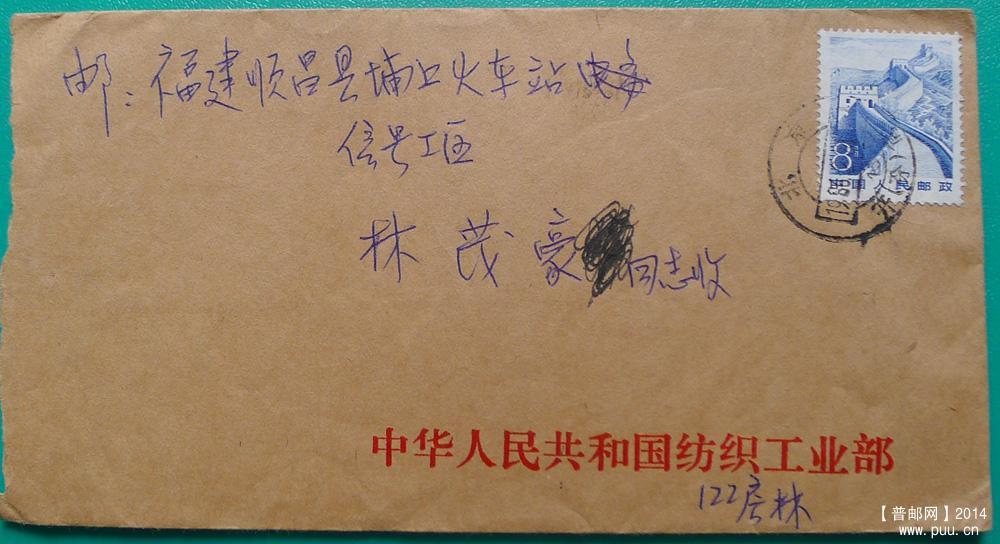 邮:福建顺昌县埔上火车站
信号工区
林茂豪 同志收
8
中国人民邮政
北京
中华人民共和国纺织工业部
122房林
【普邮网】2014
www.puu.cn